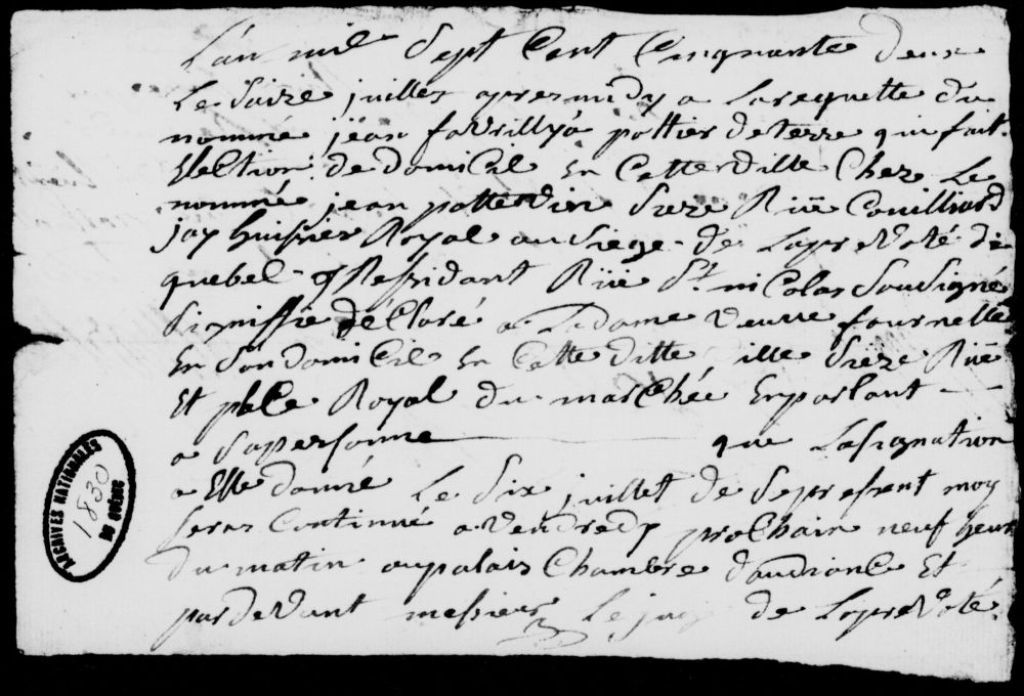 L'an mil Sept Cent Cinquante deux
Le Saize juilles apres midy a Larequette du
nommé jean pottier deterre qui fait
Election de domicil En Cette Ville Chez Le
nommé jean pottevin Size Rüe Couilliard
jay huissier Royal au Siege de Laprevoté de
quebec Ressidant Rüe St nicolas Sousigné
Signiffie déClaré a Ladame Veuve fournelle
En Son domiCil En Cette ditte Ville Sieze Rüe
Et plaCe Royal du marChée Enparlant
a Sapersonne que Lasignation
a Elle donné Le Six juillet de Sepresent moy
Seras Continué a Vendredy proChain neuf heure
Du matin aupalais Chambre daudianCe Et
pardeVant messieur Le juge de LapreVoté
ARCHIVES NATIONALES
1830
DU QUÉBEC